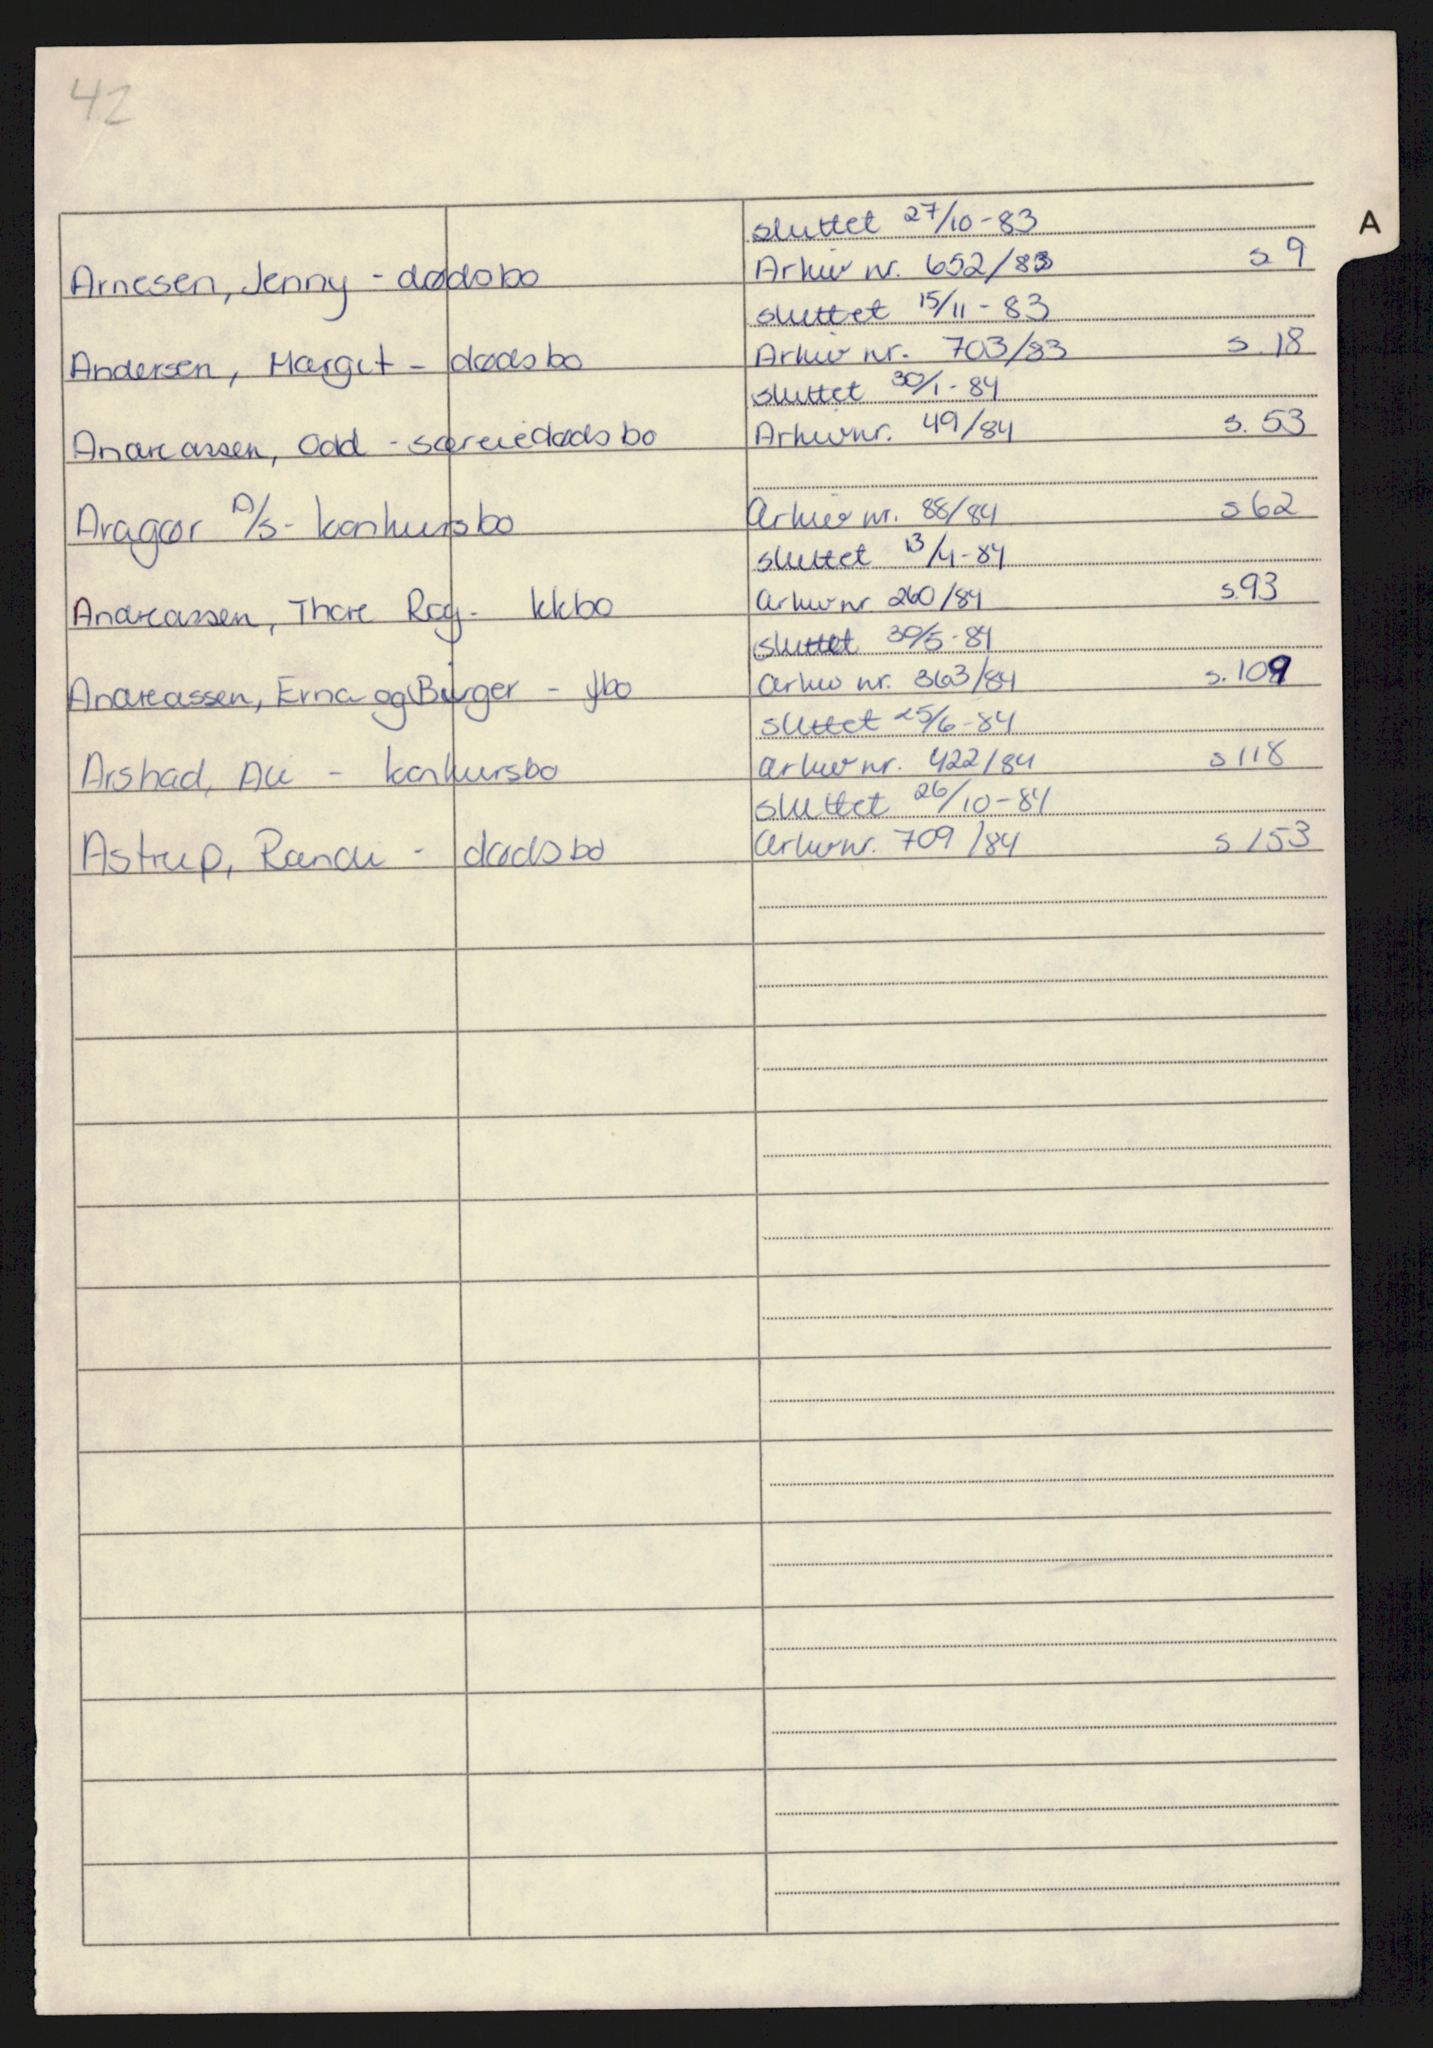 42
A
sluttet 27/10-83
Arnesen, Jenny - dødsbo Arkiv nr. 652/83 s 9
sluttet 15/11-83
Andersen, Margit - dødsbo Arkiv nr. 703/83 s. 18
sluttet 30/1-84
Andreassen, Odd - særeiedødsbo Arkivnr. 49/84 s. 53
Aragor A/S - konkursbo Arkiv nr. 88/84 s 62
sluttet 13/4-84
Andreassen, Thore Roy - kkbo Arkivnr 260/84 s.93
sluttet 30/5-84
Andreassen, Erna og Birger - fbo Arkiv nr. 363/84 s. 109
sluttet 25/6-84
Arshad, Ali - konkursbo Arkivnr. 422/84 s 118
sluttet 26/10-84
Astrup, Randi - dødsbo Arkivnr. 709/84 s 153